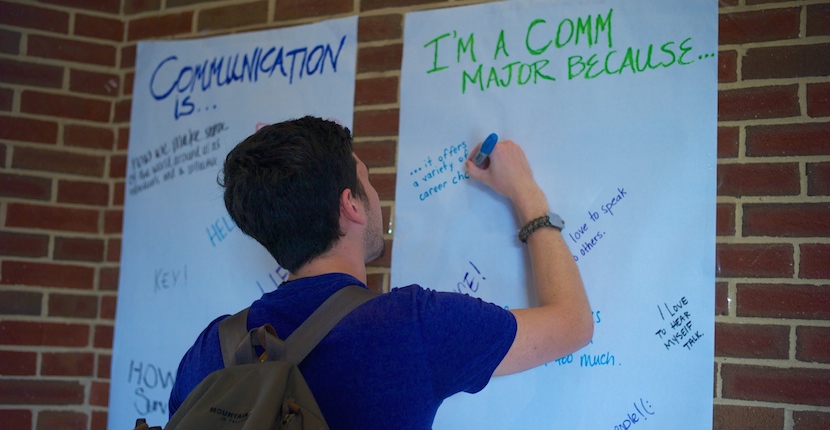 COMMUNICATION
IS...
how we make sense
of the world around us as
individuals and a collective
HEL
KEY!
LIF
HOW
I'M A COMM
MAJOR BECAUSE...
...it offers
a variety of
career ch
love to speak
others.
I LOVE
TO HEAR
MYSELF
TALK.
too much.
MOUNTAIN